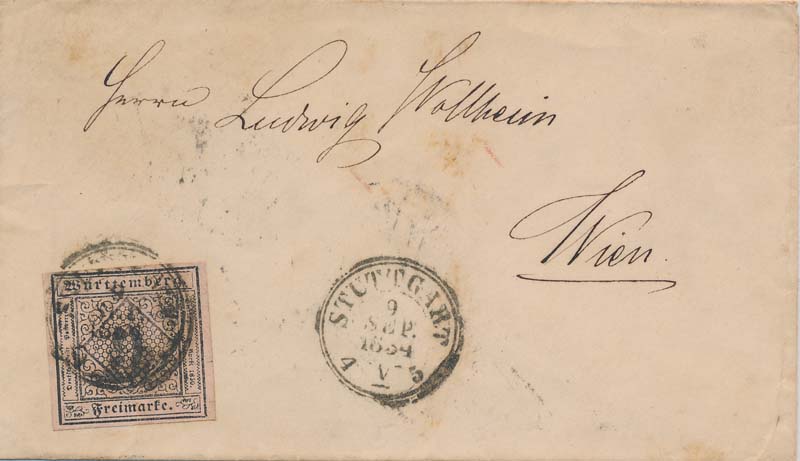 Herrn Ludwig Wollheim
Wien.
STUTTGART
9
SEP.
1854
4 V 5
Württemberg.
Freimarke.